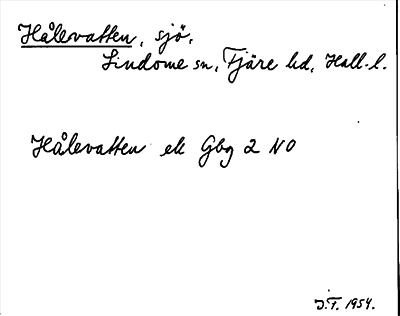 Hålevatten, sjö,
Lindome sn, Fjäre hd, Hall. l.
Hålevatten ek Gbg 2 NO
J.F. 1954.